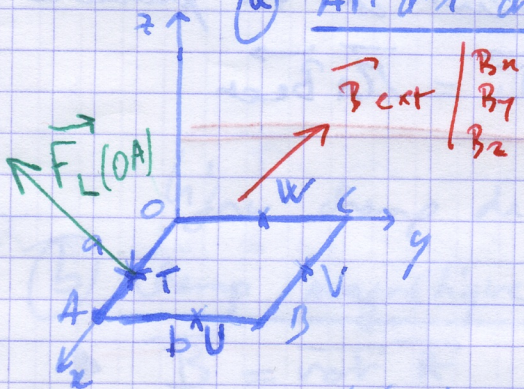 z
B ext | Bx
By
Bz
F_L(OA)
O
W
C
y
a
T
V
A
b
U
B
x